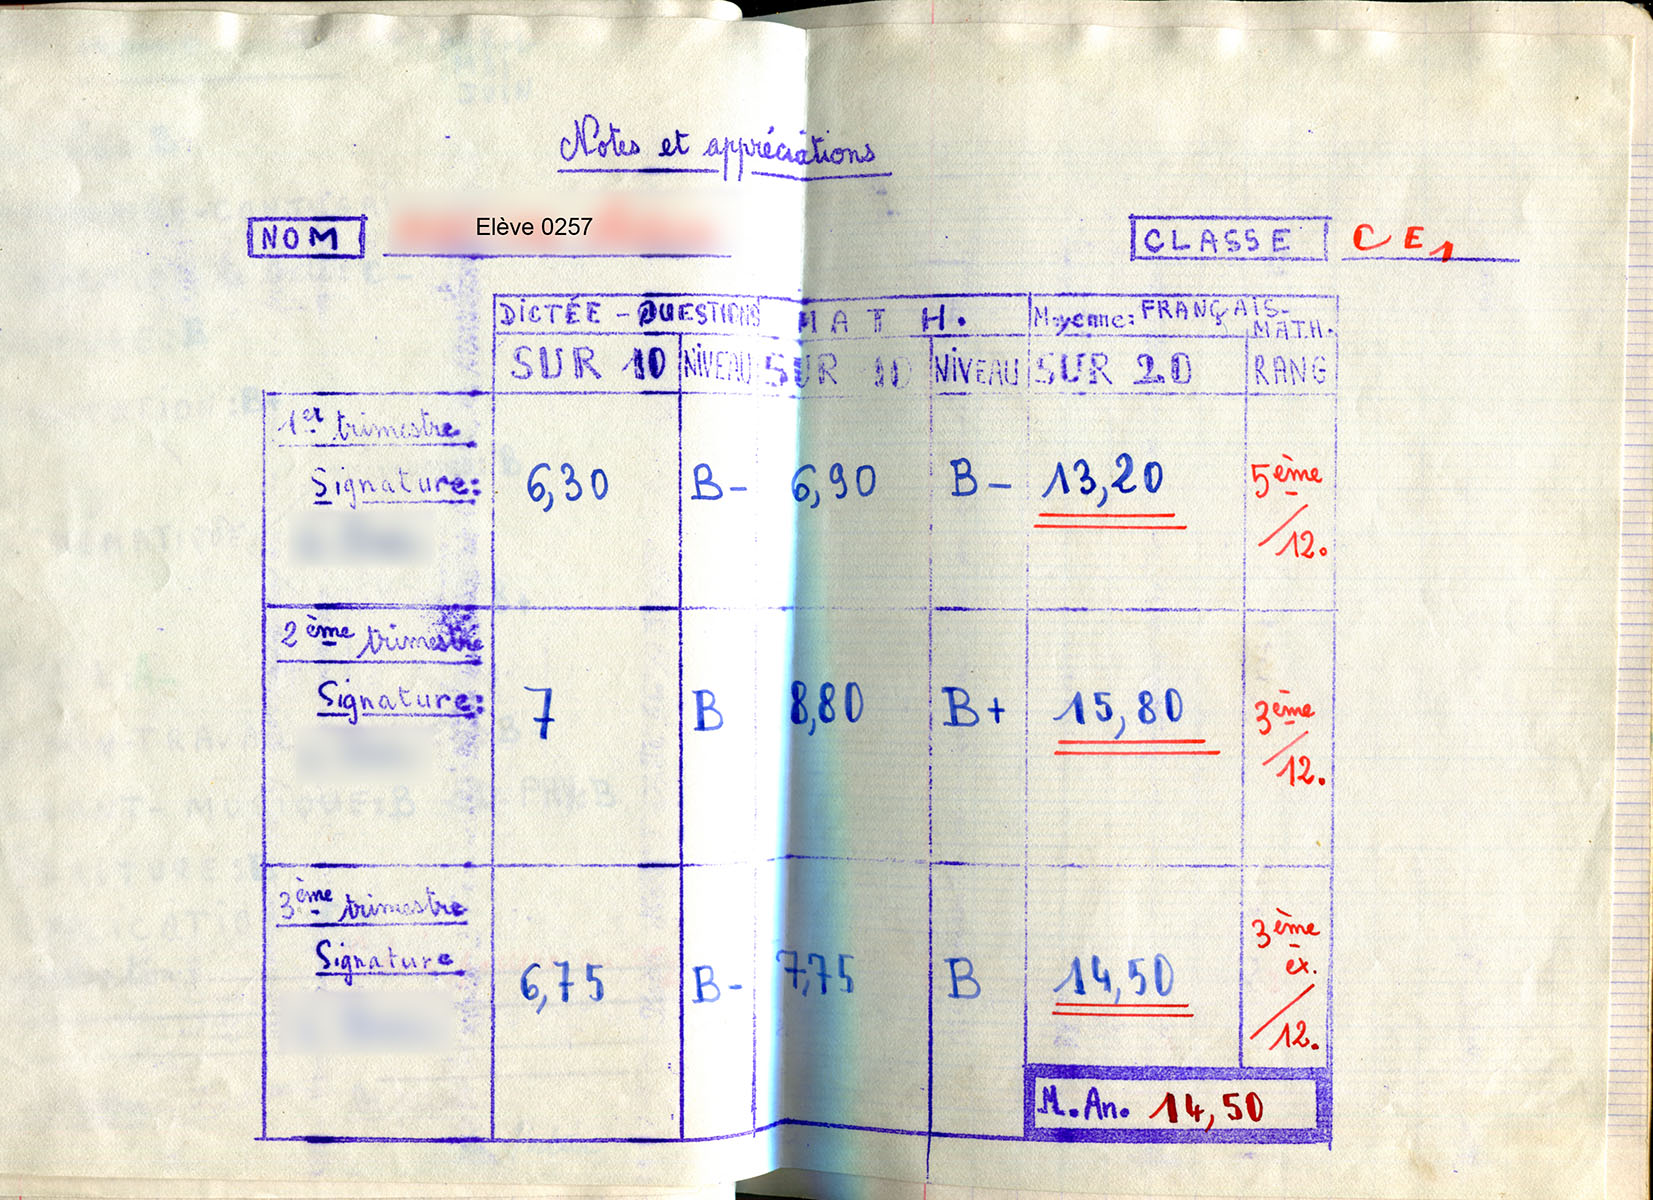 Notes et appréciations
NOM Elève 0257 CLASSE CE1
DICTÉE - QUESTIONS MATH. Moyenne: FRANÇAIS-MATH.
SUR 10 NIVEAU SUR 10 NIVEAU SUR 20 RANG
1er trimestre
Signature: 6,30 B- 6,90 B- 13,20 5ème
/12.
2ème trimestre
Signature: 7 B 8,80 B+ 15,80 3ème
/12.
3ème trimestre
Signature 6,75 B- 7,75 B 14,50 3ème
ex.
/12.
M. An. 14,50